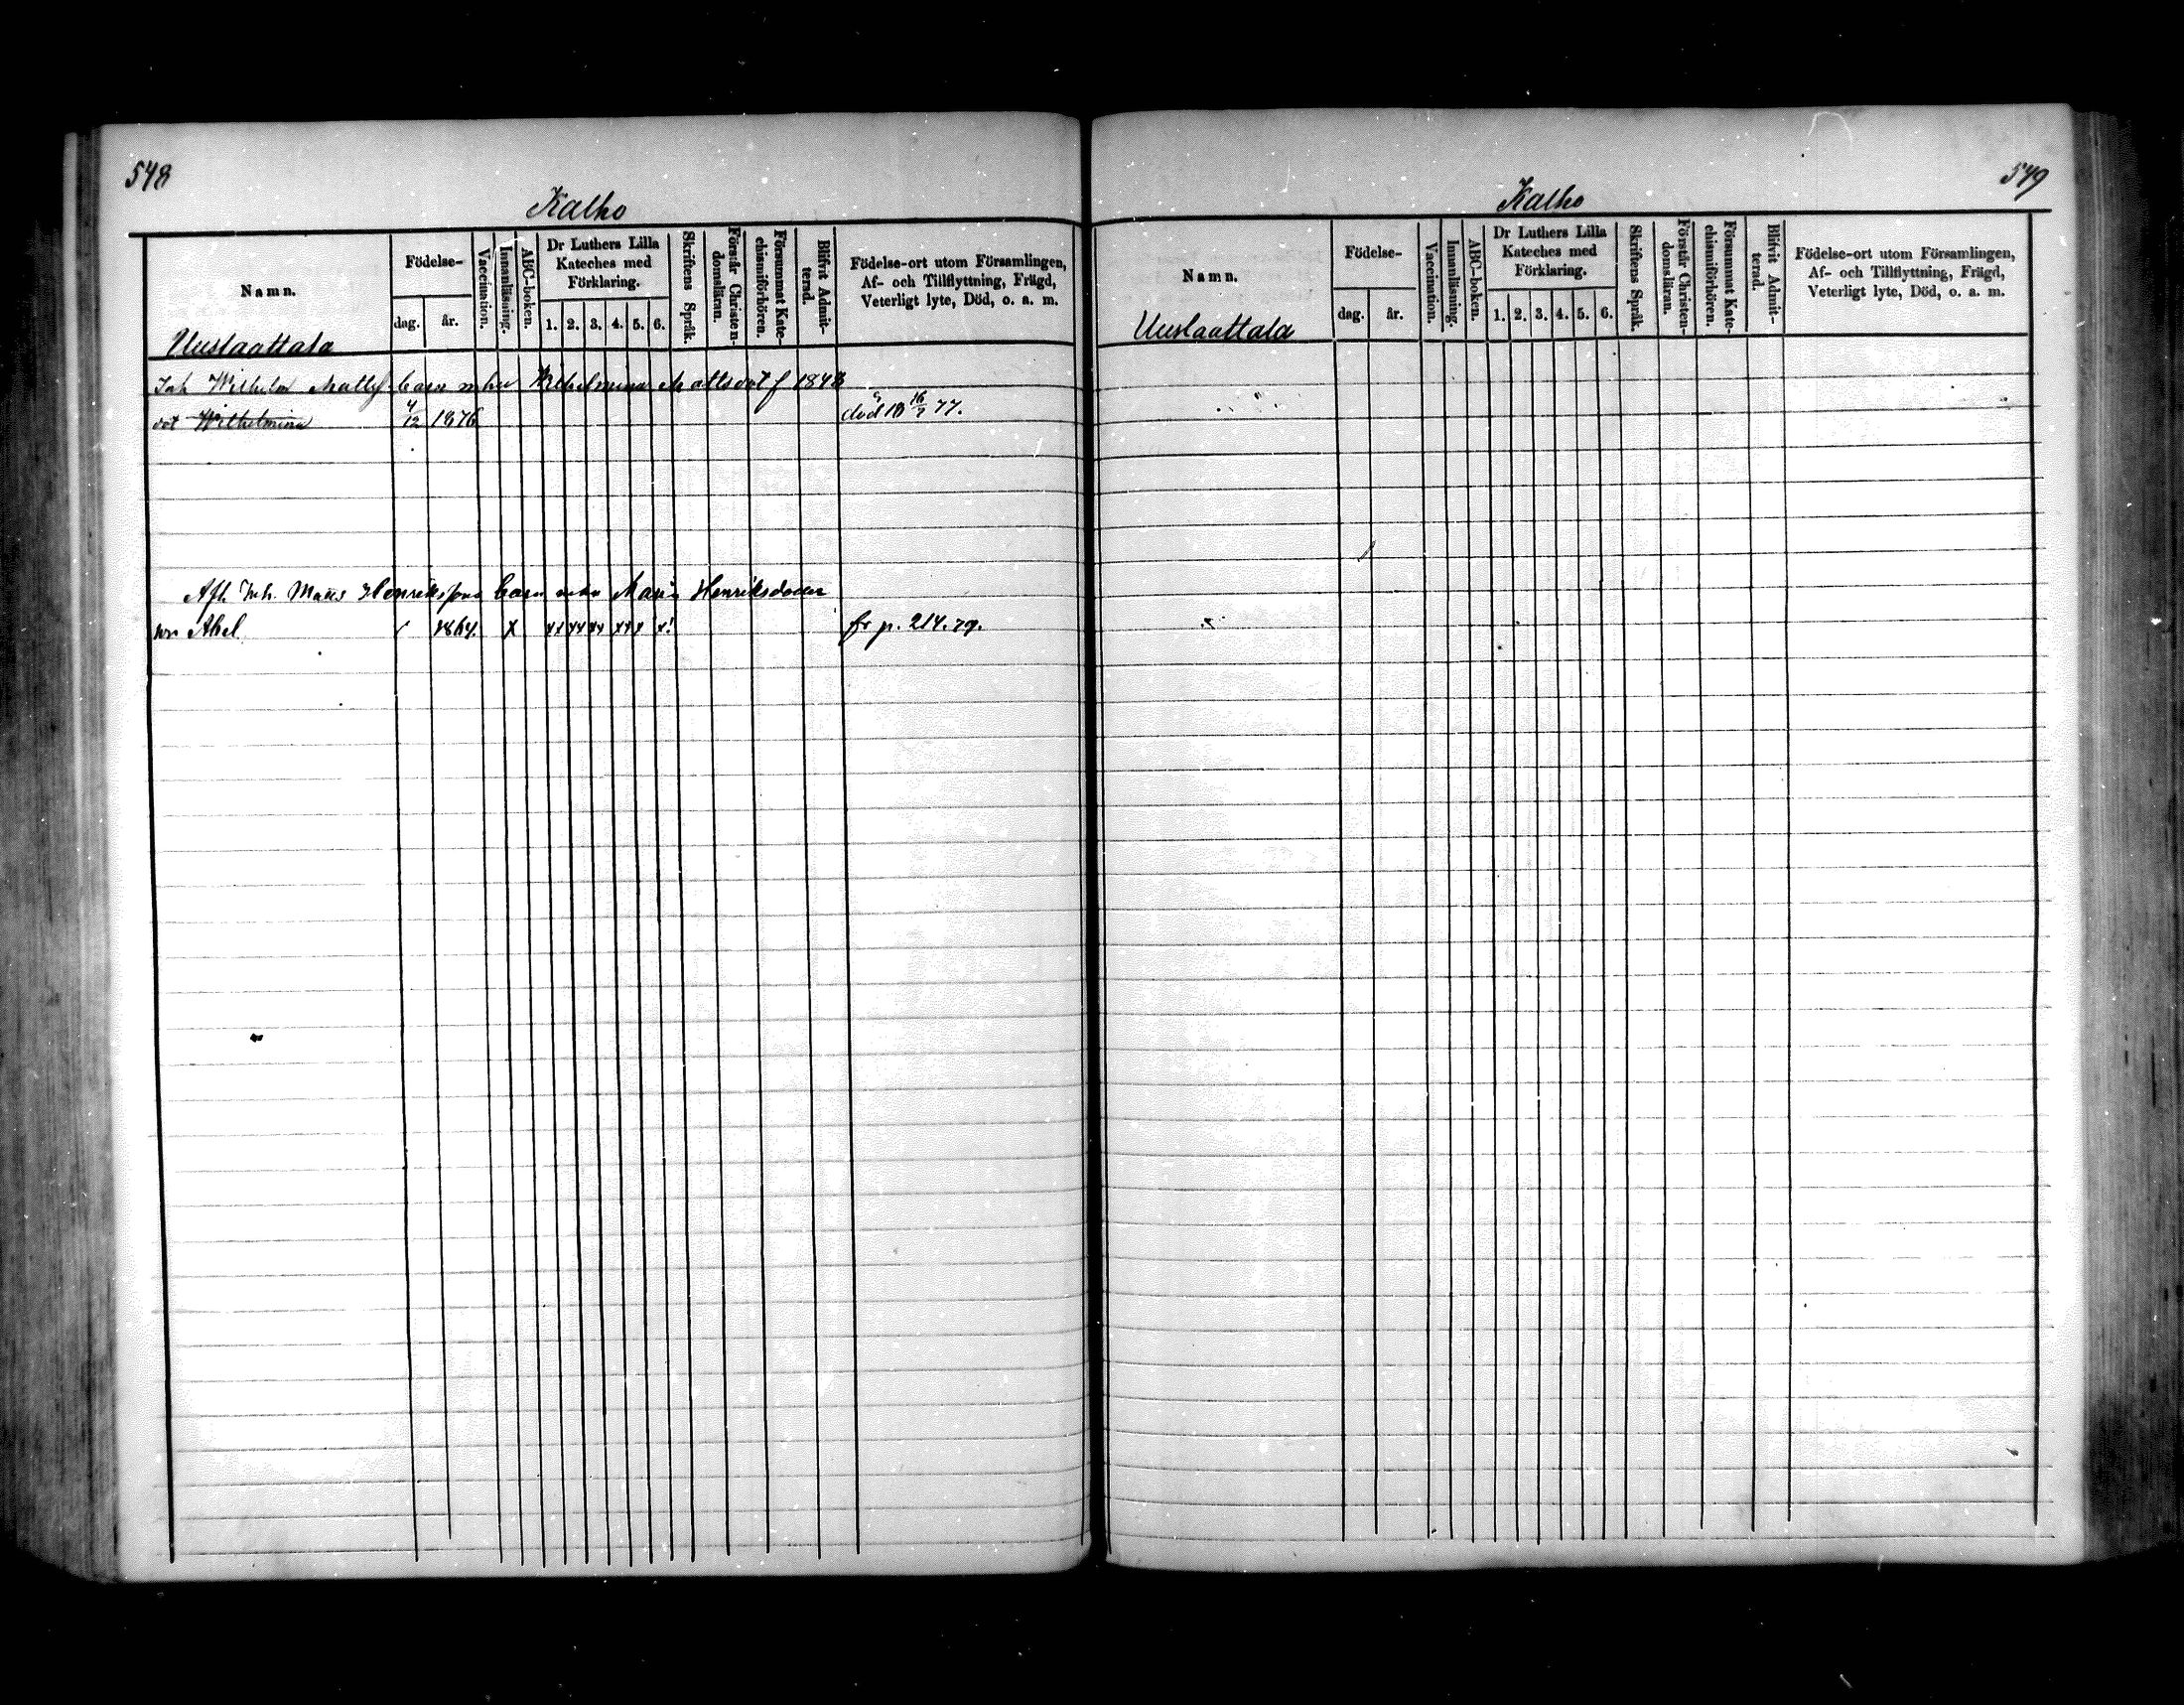 548
Kalho
Namn.
Födelse-
dag.
år.
Vaccination.
Innanläsning.
ABC-boken.
Dr Luthers Lilla
Kateches med
Förklaring.
1. 2. 3. 4. 5. 6.
Skriftens Språk.
Förstår Christen-
domsläran.
Försummat Kate-
chismiförhören.
Blifvit Admit-
terad.
Födelse-ort utom Församlingen,
Af- och Tillflyttning, Frägd,
Veterligt lyte, Död, o. a. m.
Uuslaattala
Inh Wilhelm Mattss barn m hu Wilhelmina Mattsdot f 1848
dot Wilhelmina 4/12 1876 död 18 16/7 77.
Afh. Inh. Matts Henrikssons barn m hu Maria Henriksdotter
son Abel 1864. x xx xx xx xx x x! fr p. 214. 79.
549
Kalho
Namn.
Födelse-
dag.
år.
Vaccination.
Innanläsning.
ABC-boken.
Dr Luthers Lilla
Kateches med
Förklaring.
1. 2. 3. 4. 5. 6.
Skriftens Språk.
Förstår Christen-
domsläran.
Försummat Kate-
chismiförhören.
Blifvit Admit-
terad.
Födelse-ort utom Församlingen,
Af- och Tillflyttning, Frägd,
Veterligt lyte, Död, o. a. m.
Uuslaattala